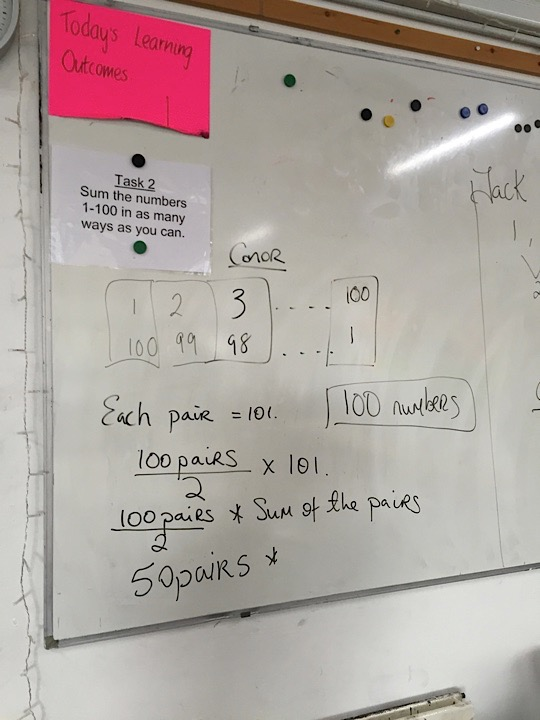 Today's Learning
Outcomes
Task 2
Sum the numbers
1-100 in as many
ways as you can.
Conor
1 2 3 .... 100
100 99 98 .... 1
Each pair = 101.
100 numbers
100 pairs / 2 x 101.
100 pairs / 2 * Sum of the pairs
50 pairs *
Jack
1,